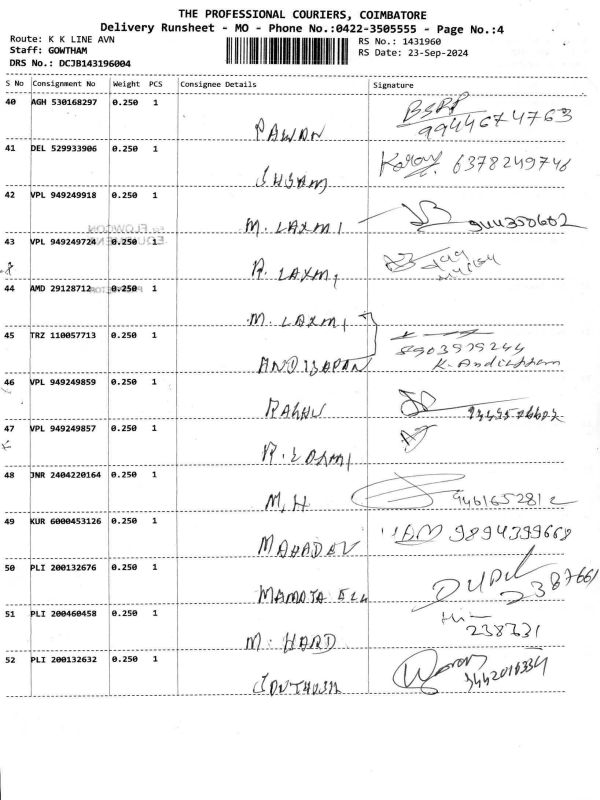 THE PROFESSIONAL COURIERS, COIMBATORE
Delivery Runsheet - MO - Phone No.:0422-3505555 - Page No.:4
Route: K K LINE AVN
Staff: GOWTHAM
DRS No.: DCJB143196004
RS No.: 1431960
RS Date: 23-Sep-2024
S No Consignment No Weight PCS Consignee Details Signature
40 AGH 530168297 0.250 1 PAWAN 9944674763
41 DEL 529933906 0.250 1 SHYAM 6378249746
42 VPL 949249918 0.250 1 M. LAXMI
43 VPL 949249724 0.250 1 R. LAXMI
44 AMD 29128712 0.250 1 M. LAXMI
45 TRZ 110057713 0.250 1 8903979244
46 VPL 949249859 0.250 1 RAGHU
47 VPL 949249857 0.250 1 R. LAXMI
48 JNR 2404220164 0.250 1 M, H 9461652812
49 KUR 6000453126 0.250 1 MAHADEV 9894399668
50 PLI 200132676 0.250 1 MAMATA
51 PLI 200460458 0.250 1 M. HARD
52 PLI 200132632 0.250 1